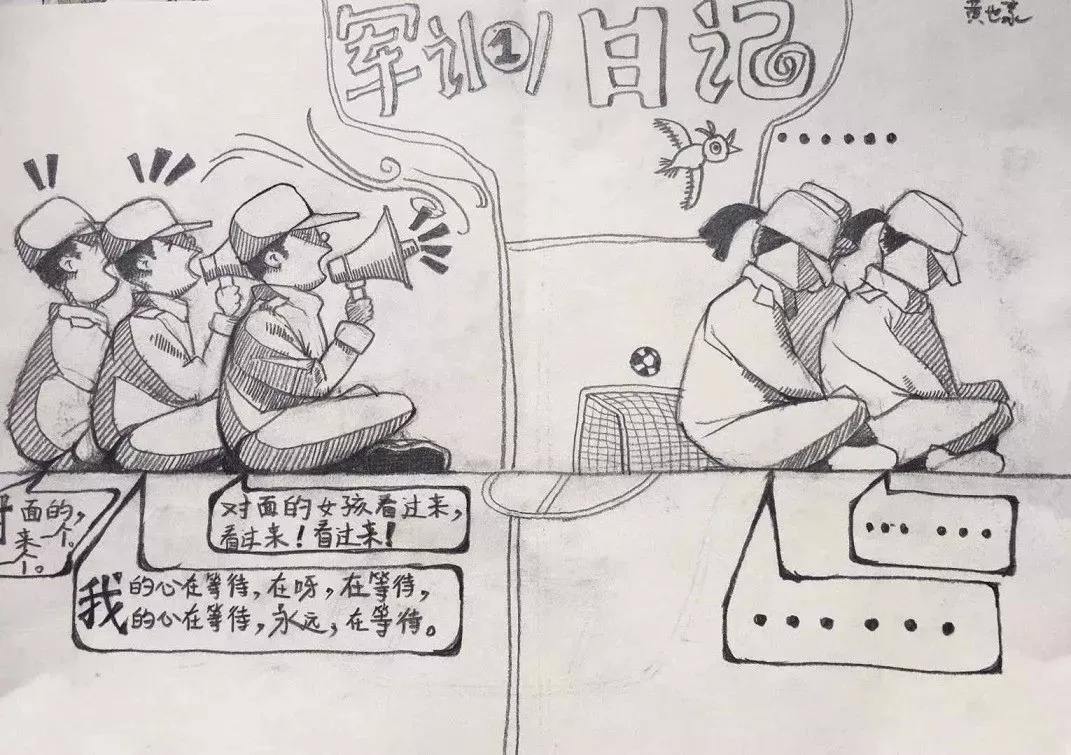 军训①日记
......
面的，
来个。
个。
对面的女孩看过来，
看过来！看过来！
我的心在等待，在呀，在等待，
的心在等待，永远，在等待。
... ...
......